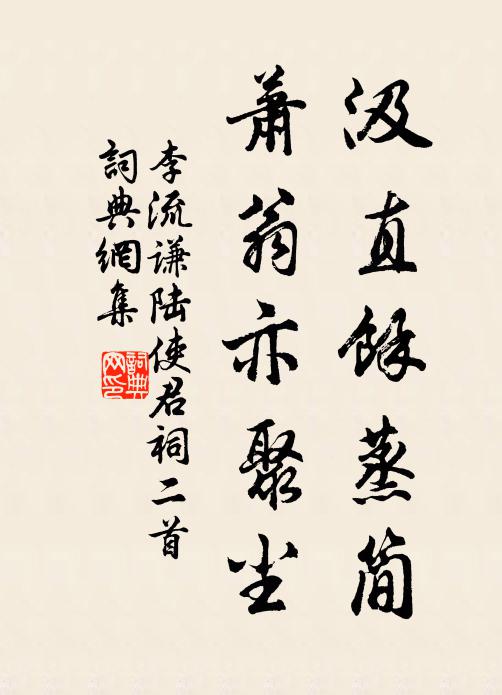 汲直餘蒸简
蕭翁亦聚尘
李流谦陆使君祠二首
詞典網集
詞典网印